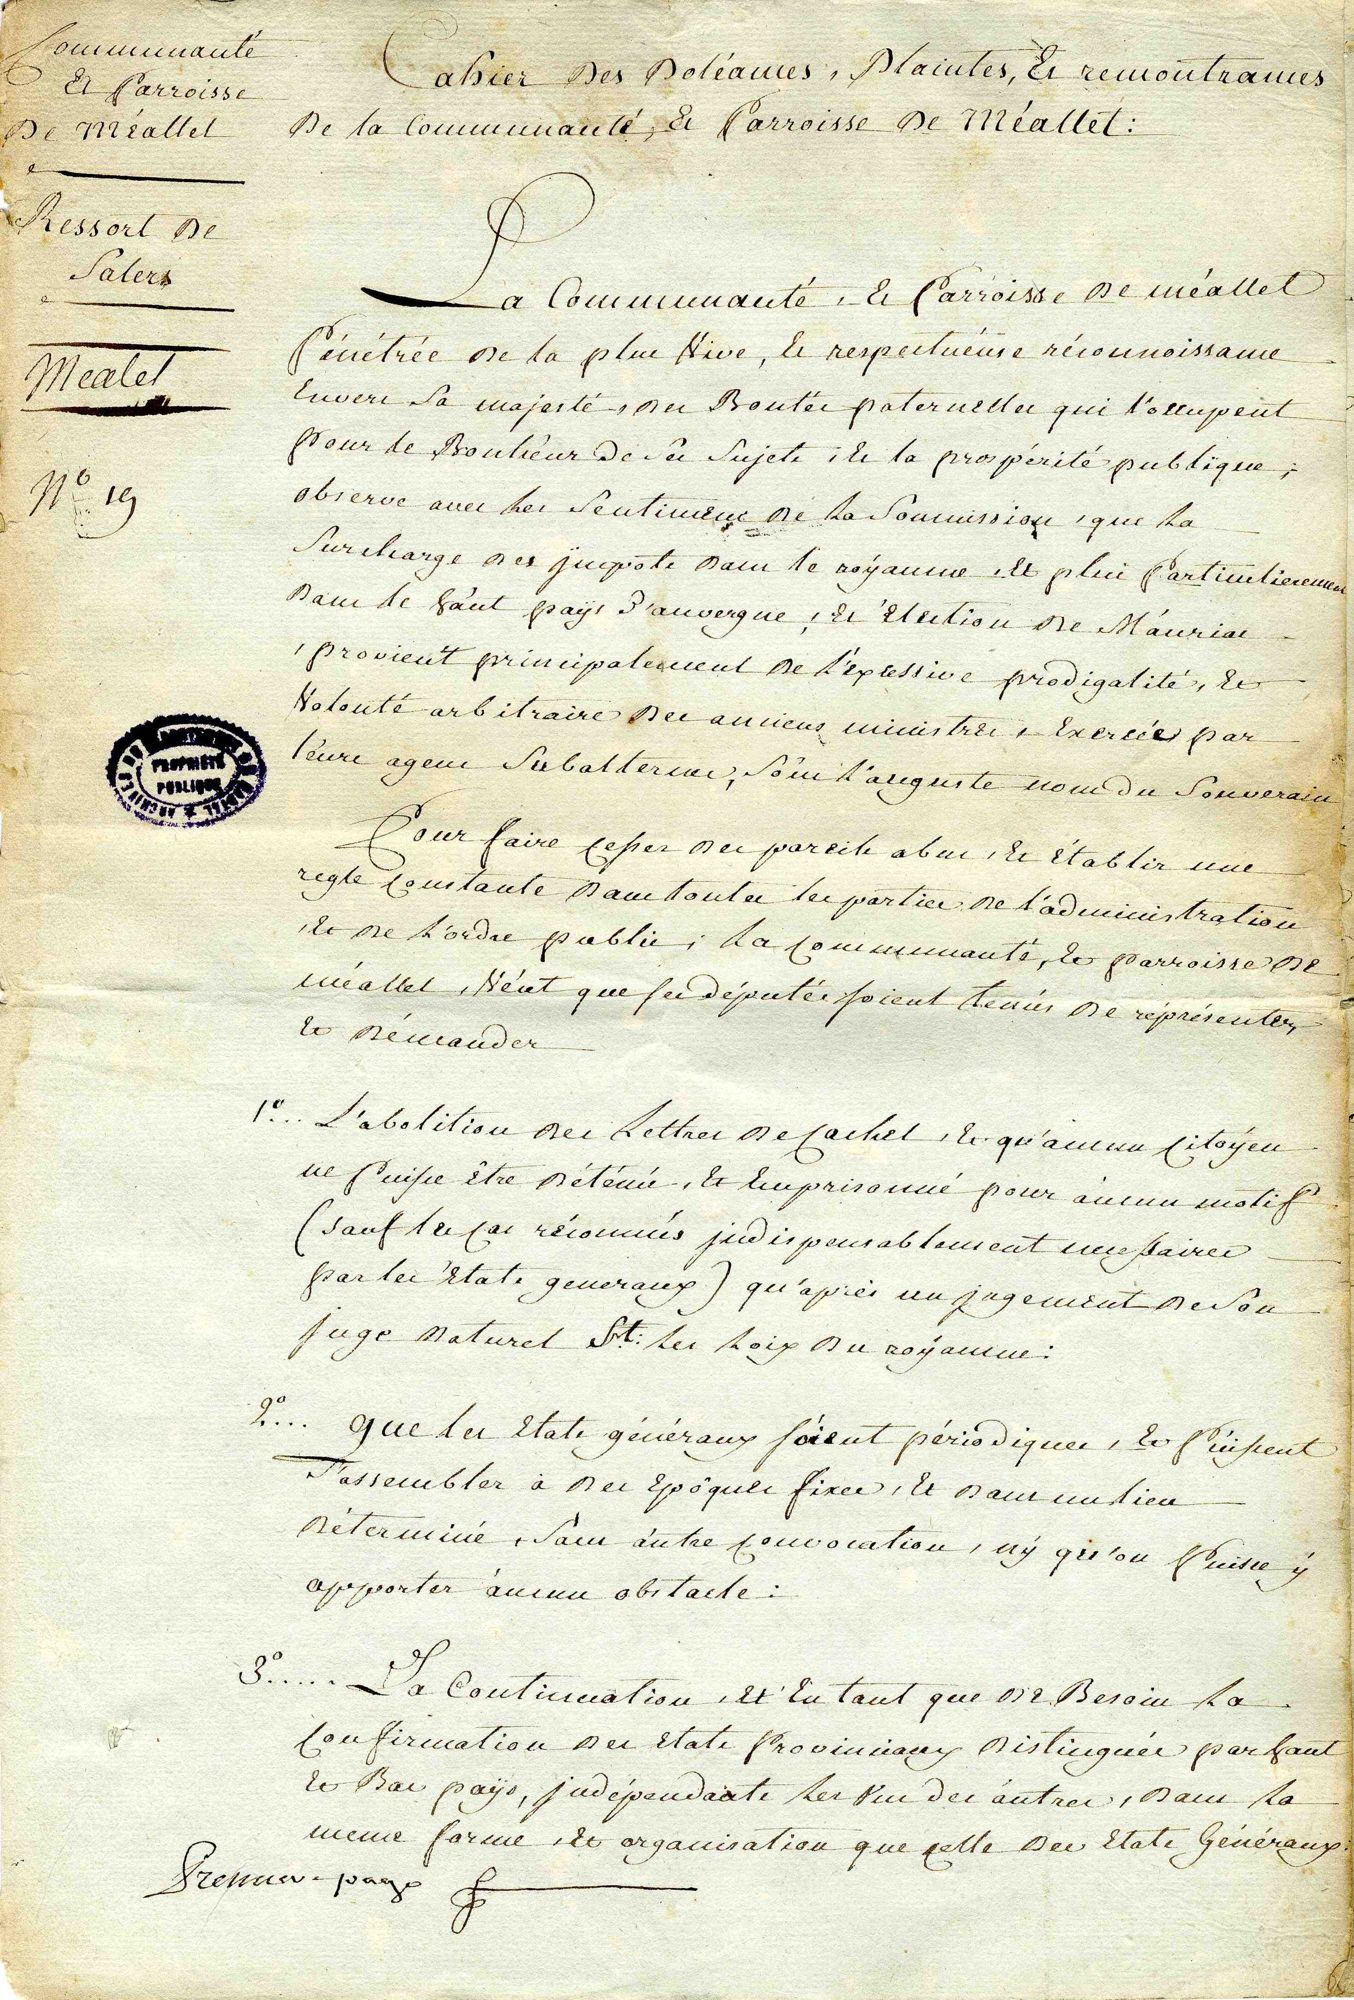 Communauté
Et Parroisse
De Méallet
Ressort De
Salers
Mealet
N° 19
Cahier Des Doléances, Plaintes, Et remontrances
De la Communauté, Et Parroisse De Méallet:
La Communauté, Et Parroisse De méallet
Pénétrée De la plus Vive, Et respectuéuse réconnoissance
Envers Sa majesté, Des Bontés paternelles qui l'occupent
pour le Bonhéur De Ses Sujets, Et la prospérité publique;
observe avec Les Sentimens De La Soumission, que La
Surcharge Des jmpots Dans le royaume, Et plus Particulierement
Dans le háut pays D'auvergne, Et Election De Máuriac
, provient principalement De L'excessive prodigalité, Et
Volonté arbitraire Des anciens ministres, Exercée par
léurs agens Subalternes, Sous l'auguste nom du Souverain
Pour faire Cesser Des pareils abus, Et Etablir une
regle Constante Dans toutes les parties De l'administration
, Et De L'ordre public; La Communauté, Et parroisse De
méallet, Véut que Ses députés soient tenus De réprésenter,
Et Démander
1°... L'abolition Des Lettres De Cachet, Et qu'aucun Citoyen
ne Puisse être Déténu, Et Emprisonné pour áucun motif
(Sauf les Cas réconnus jndispensablement necessaires
par les Etats generaux) qu'après un jugement De Son
juge Naturel St: Les Loix Du royaume:
2°.... que les Etats généraux soient périodiques, Et Puissent
S'assembler à Des Epôques fixes, Et Dans un lieu
Déterminé, Sans áutre Convocation, ny qu'on Puisse y
apporter áucun obstacle:
3°..... La Continuation, Et En tant que De Besoin La
Confirmation Des Etats Provinciaux Distingués par haut
Et Bas pays, jndépendants Les Uns des áutres, Dans La
meme forme, Et organisation que Celle Des Etats Généraux:
Premier page
ARCHIVES DU DEPARTEMENT DU CANTAL
PROPRIÉTÉ
PUBLIQUE